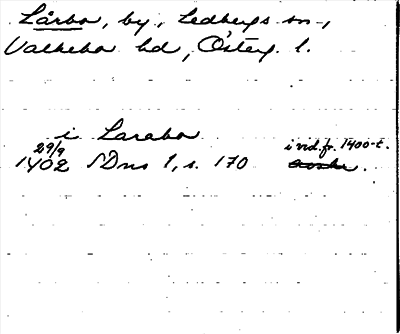 Lårbo, by, Ledbergs sn,
Valkebo hd, Österg. l.
i Larabo
29/9
1402 SDns 1, s. 170 i vid. fr. 1400-t.